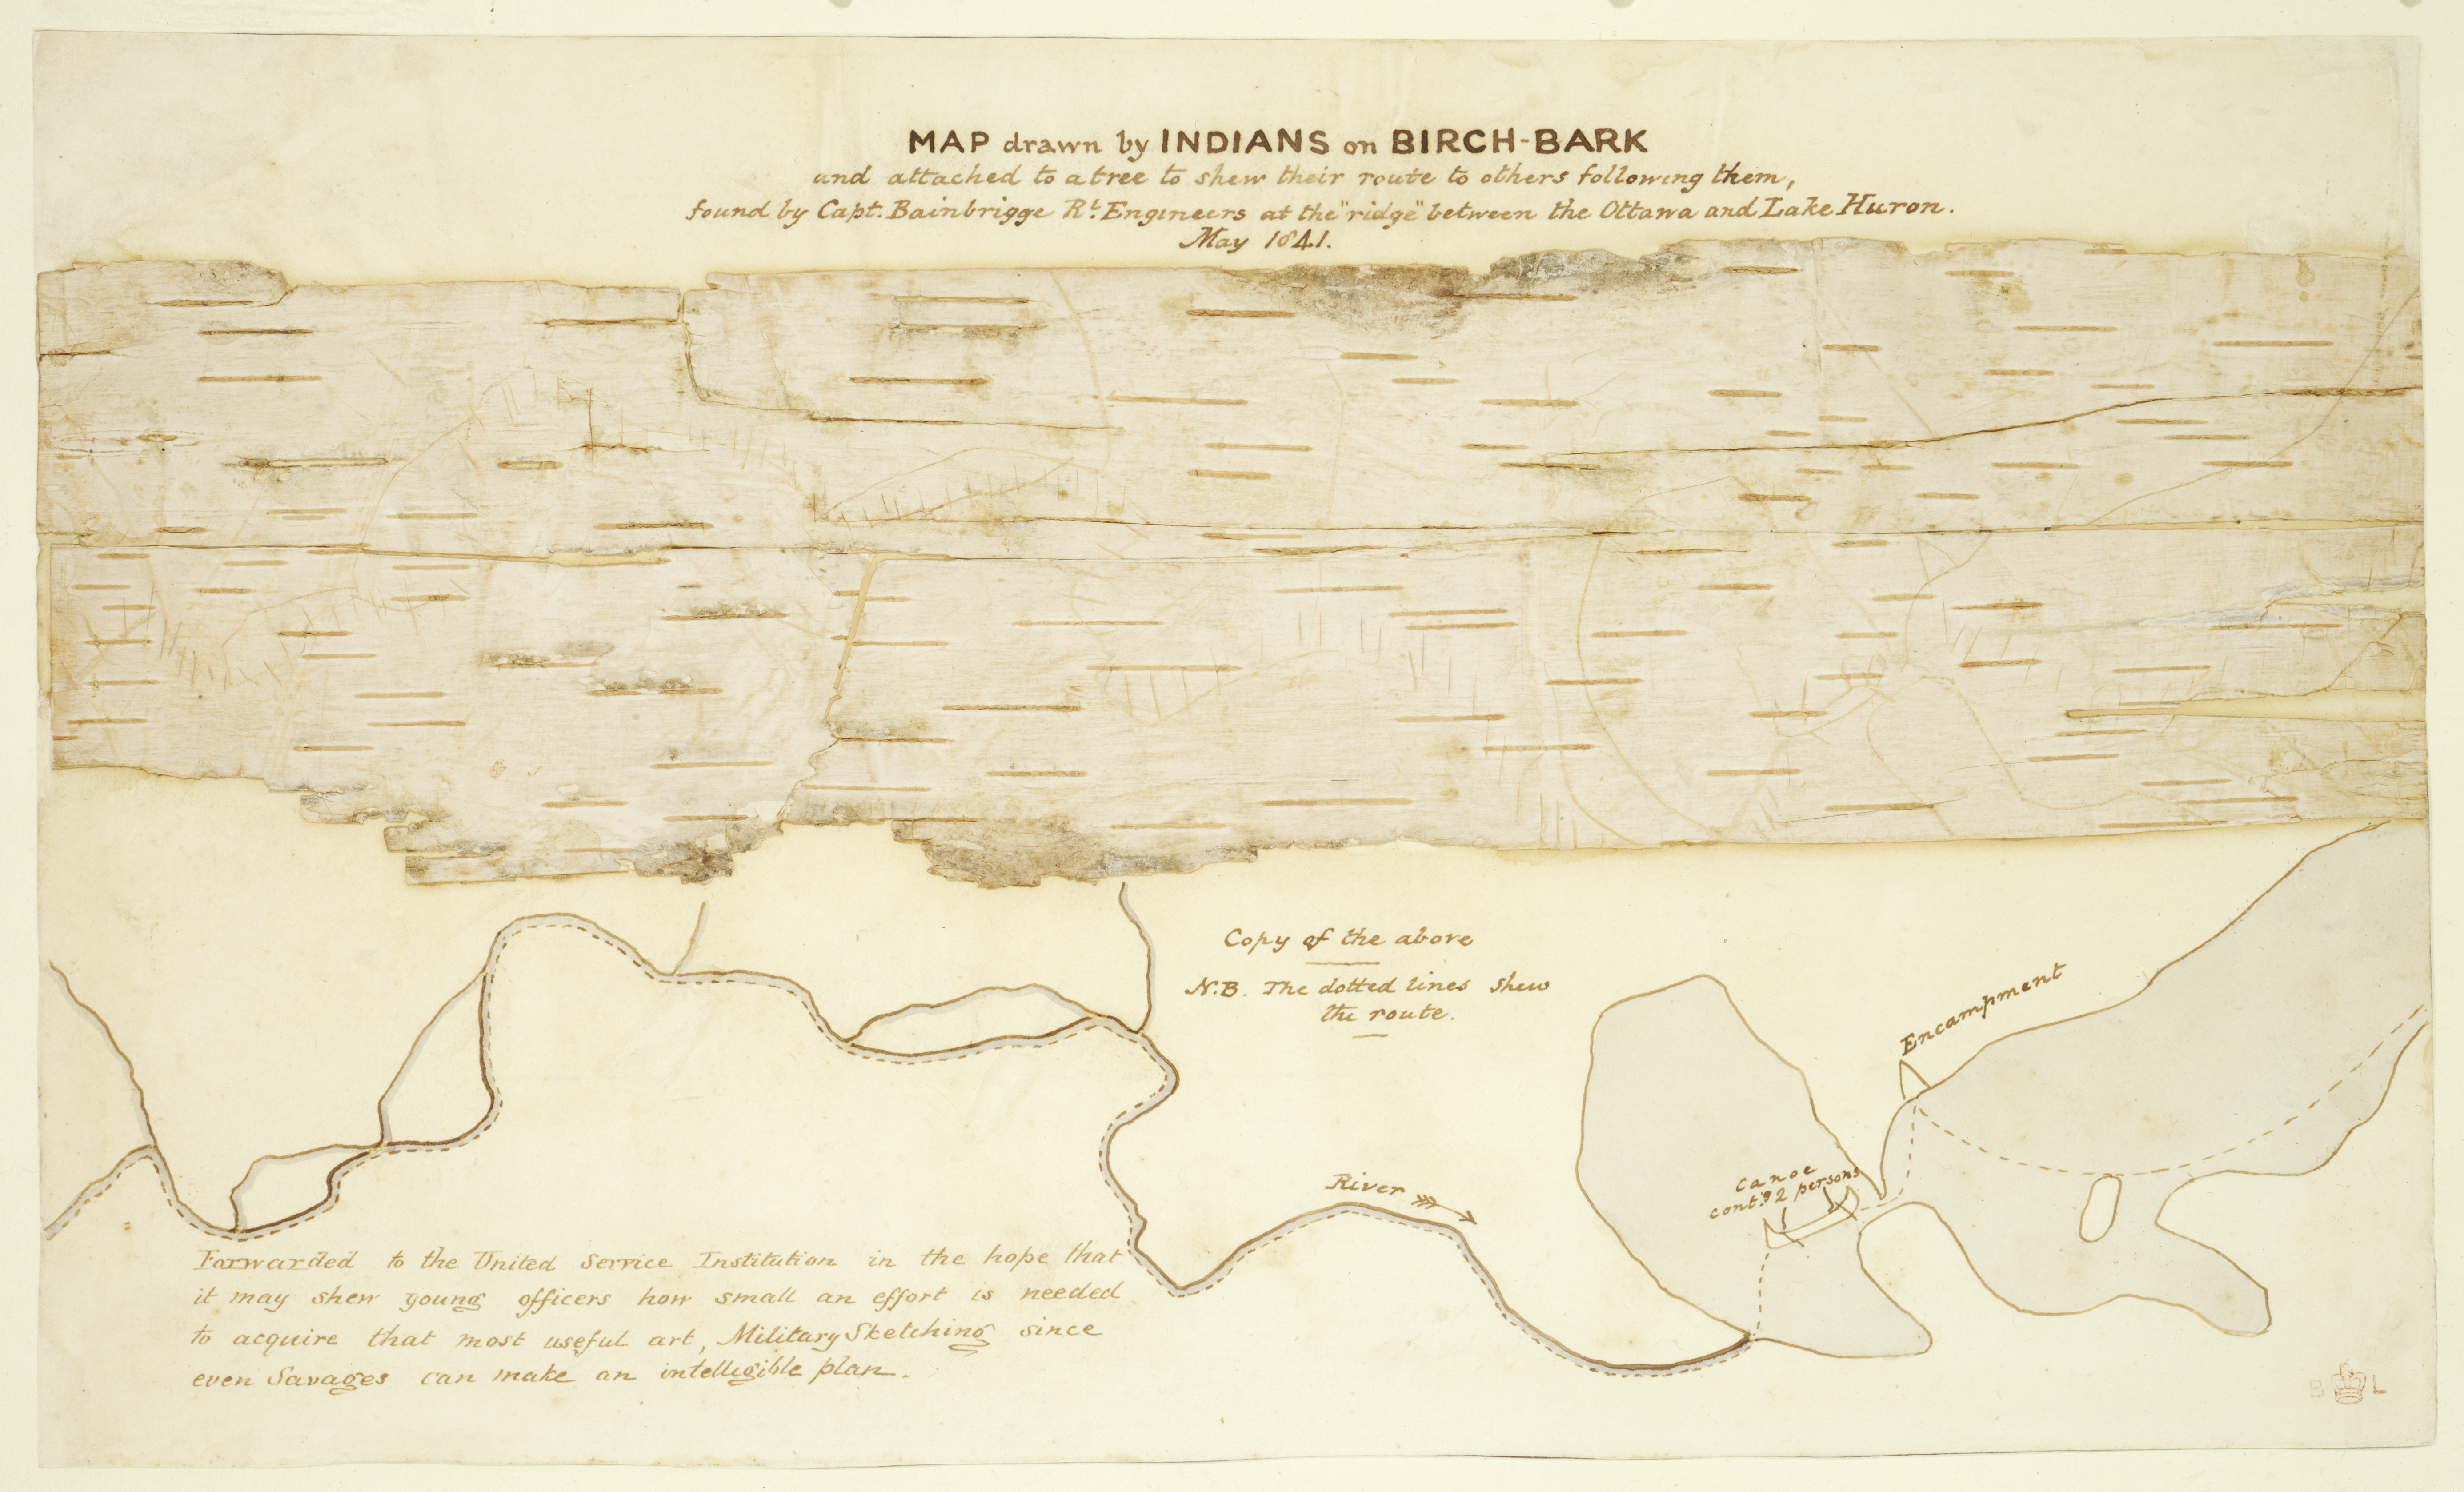 MAP drawn by INDIANS on BIRCH-BARK
and attached to a tree to shew their route to others following them,
found by Capt. Bainbrigge Rl. Engineers at the "ridge" between the Ottawa and Lake Huron.
May 1841.
Copy of the above
N.B. The dotted lines shew
the route.
Encampment
Canoe
contg. 2 persons
River
Forwarded to the United Service Institution in the hope that
it may shew young officers how small an effort is needed
to acquire that most useful art, Military Sketching since
even Savages can make an intelligible plan.
B L